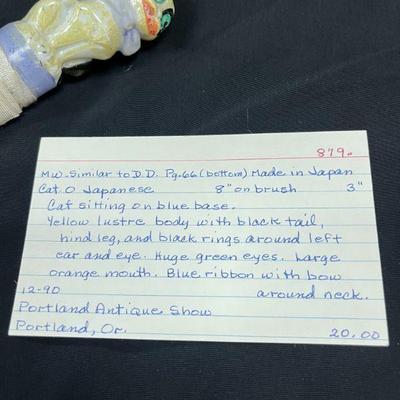 879.
Mw. Similar to D.D. Pg. 66 (bottom) Made in Japan
Cat. O Japanese 8" on brush 3"
Cat sitting on blue base.
Yellow lustre body with black tail,
hind leg, and black rings around left
ear and eye. Huge green eyes. Large
orange mouth. Blue ribbon with bow
12-90 around neck.
Portland Antique Show
Portland, Or. 20.00